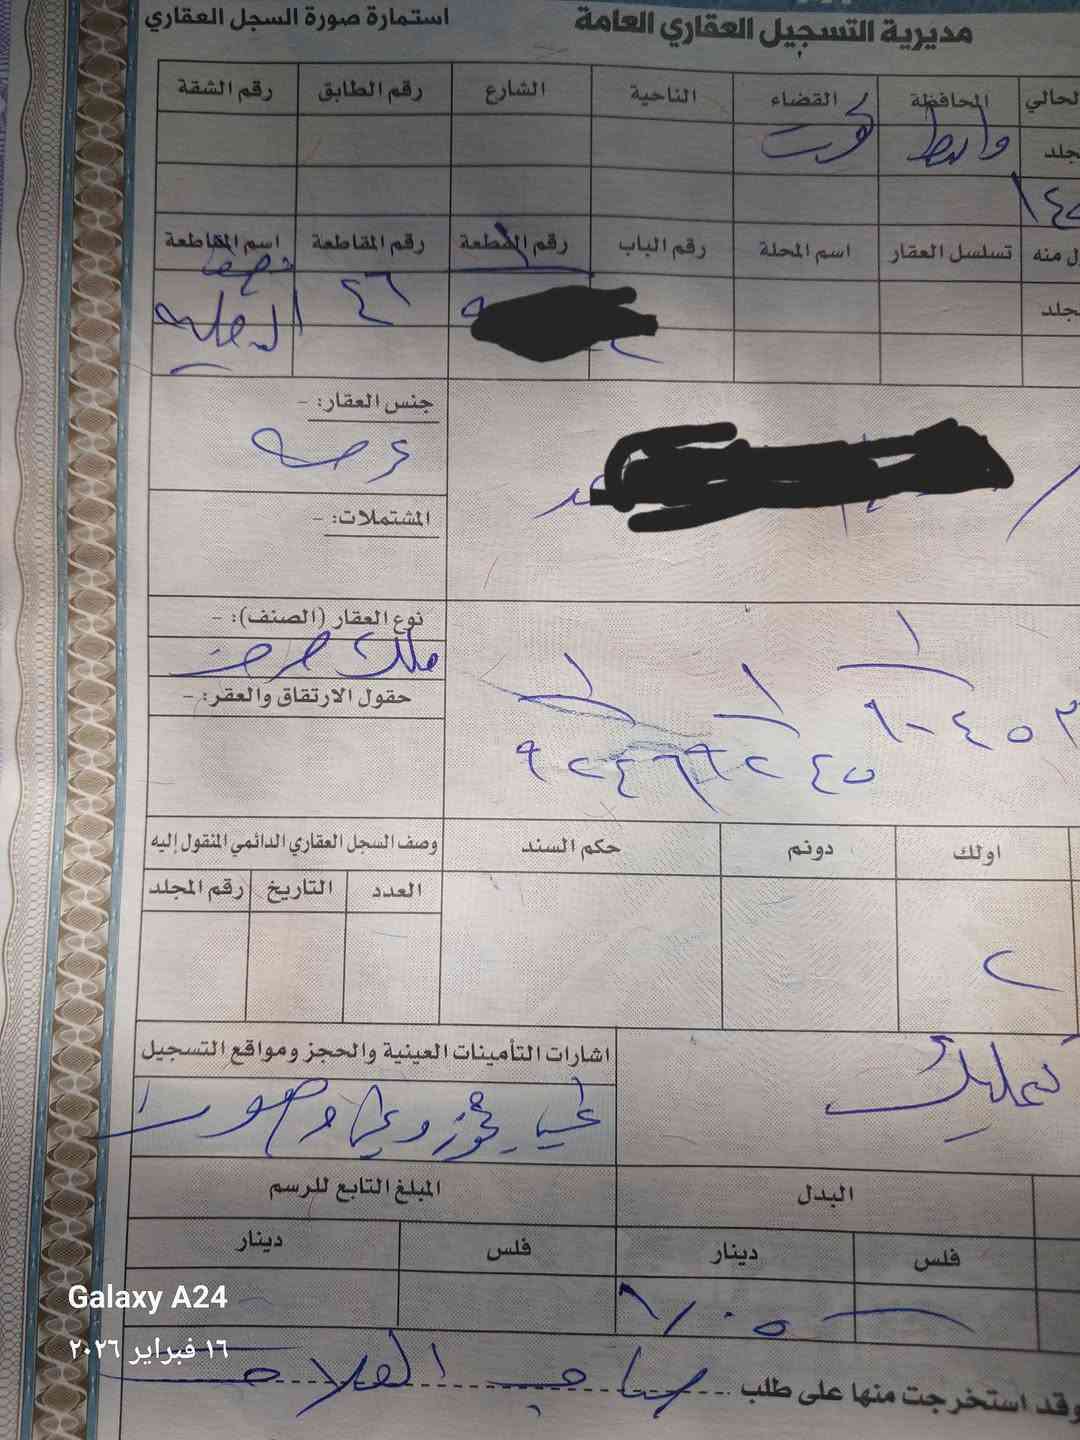 مديرية التسجيل العقاري العامة
استمارة صورة السجل العقاري
الحالي المحافظة القضاء الناحية الشارع رقم الطابق رقم الشقة
جلد واسط كوت
تسلسل العقار اسم المحلة رقم الباب رقم القطعة رقم المقاطعة اسم المقاطعة
جلد ٤٦
جنس العقار: -
عرصه
المشتملات: -
نوع العقار (الصنف): -
ملك صرف
حقول الارتقاق والعقر: -
اولك دونم حكم السند وصف السجل العقاري الدائمي المنقول إليه
العدد التاريخ رقم المجلد
٢
تمليك
اشارات التأمينات العينية والحجز ومواقع التسجيل
البدل المبلغ التابع للرسم
فلس دينار فلس دينار
وقد استخرجت منها على طلب صاحب العلاقة
Galaxy A24
١٦ فبراير ٢٠٢٦